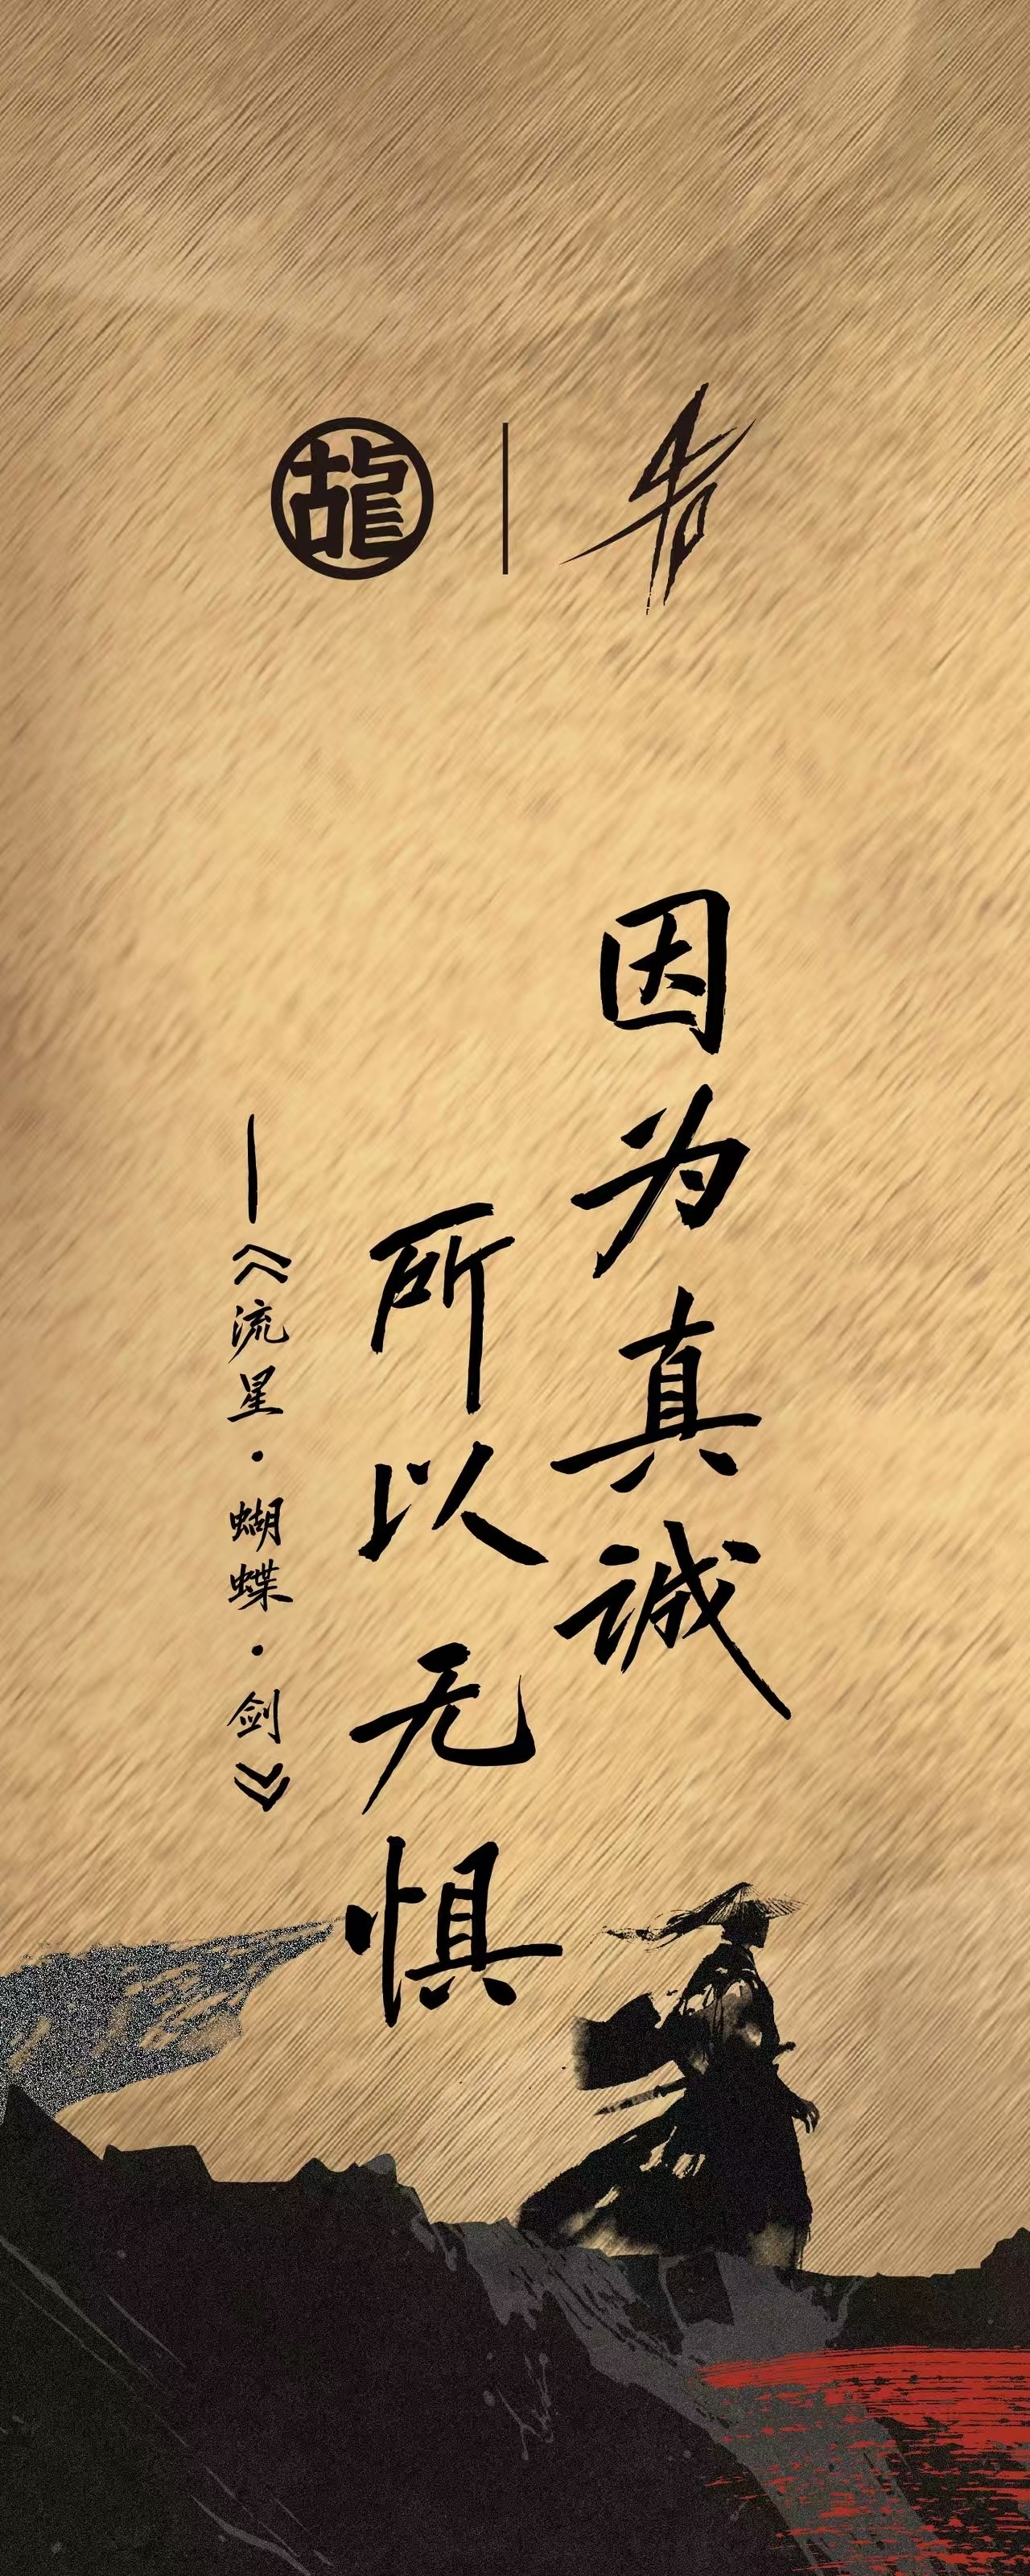 古龍
因为真诚
所以无惧
—《流星·蝴蝶·剑》